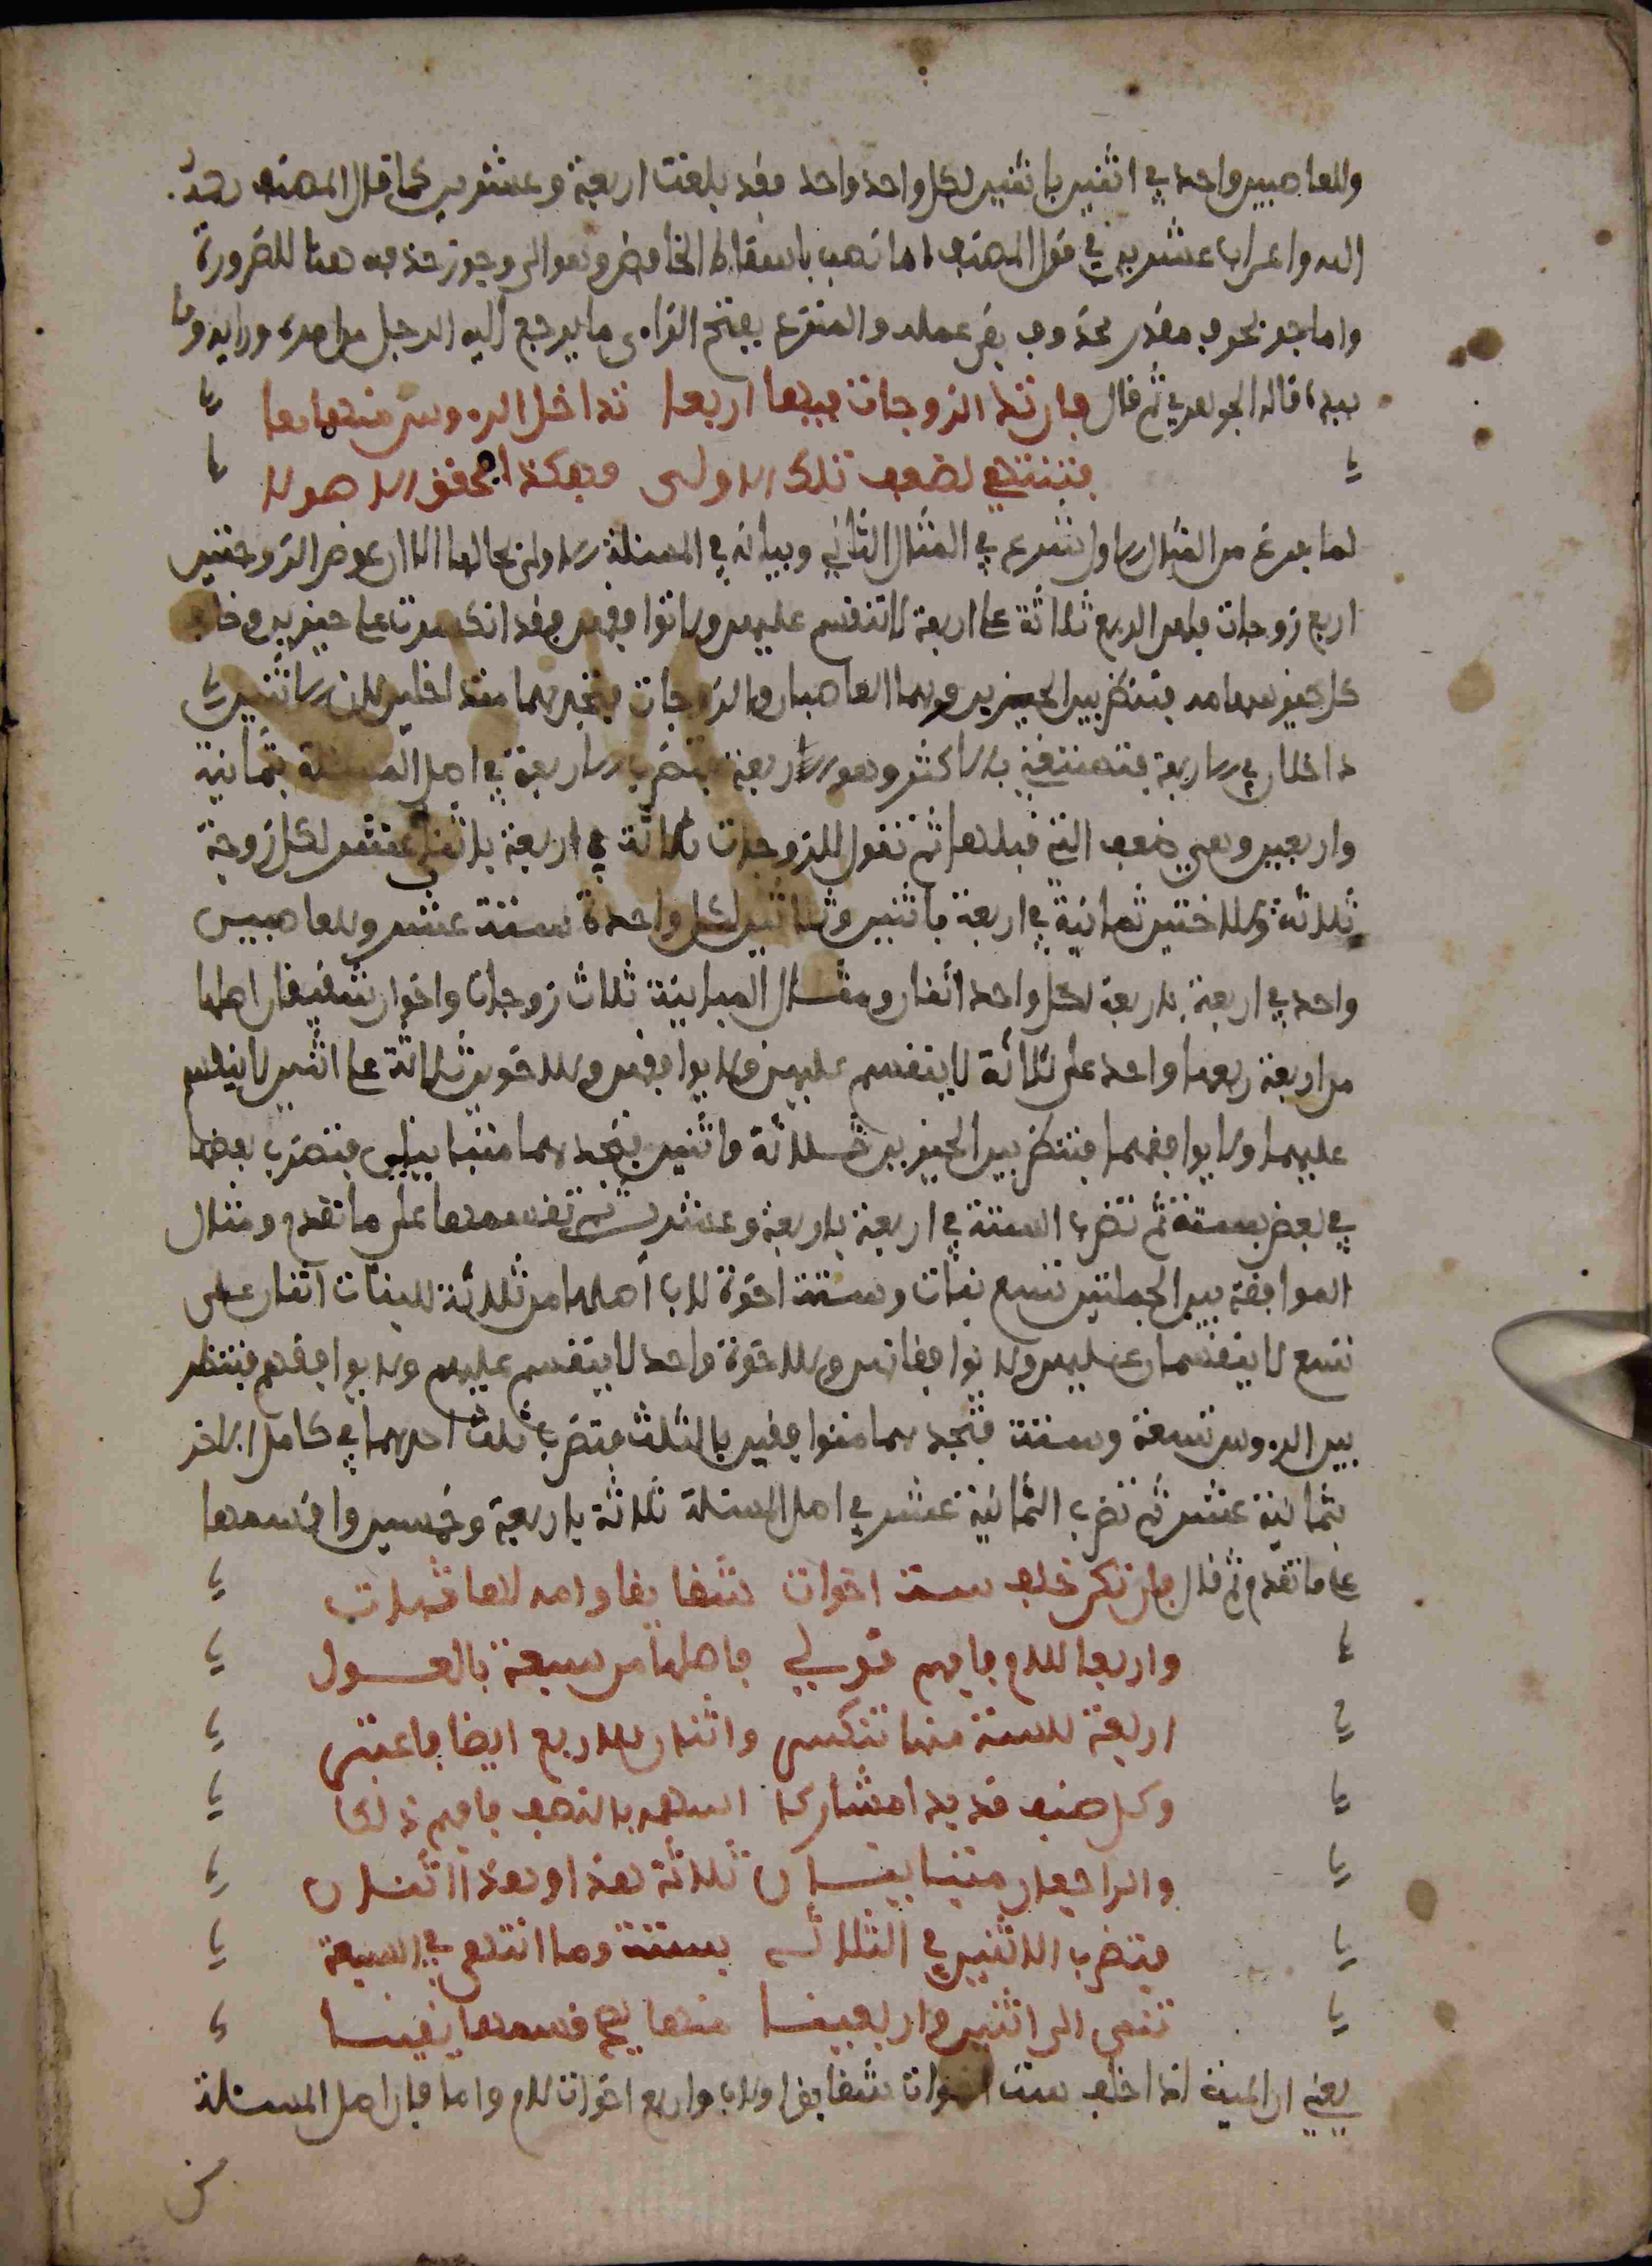 وللعاصبين واحد في اثنين باثنين لكل واحد واحد فقد بلغت اربعة وعشرين كما قال المصنف رحمه
الله واعراب عشرين في قول المصنف اما نصب باسقاط الخافض وهو الى وجوز حذفه هنا للضرورة
واما جر بحرف مقدر محذوف بقى عمله والمنزع بفتح الزاى ما يرجع اليه الرجل من امره ورايه و
قاله الجوهري ثم قال فان ترد الزوجات فيها اربعا تداخل الروس منها معا
فتنتهي لضعف تلك الاولى وهكذا محقق الاصولا
لما فرغ من المثال الاول شرع في المثال الثاني وبيانه في المسئلة الاولى بحالها الا ان عوض الزوجتين
اربع زوجات فلهن الربع ثلاثة على اربعة لا تنقسم عليهن ولا توافقهن وقد انكسرت على حيزين وخالف
كل حيز سهامه فتنظر بين الحيزين وهما العاصبان والزوجات فتجدهما متداخلين لان الاثنين
داخلان في الاربعة فتستغني بالاكثر وهو الاربعة فتضرب الاربعة في اصل المسئلة بثمانية
واربعين وهي ضعف التي قبلها ثم تقول للزوجات ثلاثة في اربعة باثني عشر لكل زوجة
ثلاثة وللاختين ثمانية في اربعة باثنين وثلاثين لكل واحدة ستة عشر وللعاصبين
واحد في اربعة باربعة لكل واحد اثنان ومثال المباينة ثلاث زوجات واخوان شقيقان اصلها
من اربعة ربعها واحد على ثلاثة لا ينقسم عليهن ولا يوافقهن وللاخوين ثلاثة على اثنين لا ينقسم
عليهما ولا يوافقهما فتنظر بين الحيزين ثلاثة واثنين فتجدهما متباينين فتضرب بعضها
في بعض بستة ثم تضرب الستة في اربعة باربعة وعشرين ثم تقسمها على ما تقدم ومثال
الموافقة بين الجماعتين تسع بنات وستة اخوة لاب اصلها من ثلاثة للبنات اثنان على
تسع لا ينقسمان عليهن ولا يوافقانهن وللاخوة واحد لا ينقسم عليهم ولا يوافقهم فتنظر
بين الروس تسعة وستة فتجدهما متوافقين بالثلث فتضرب ثلث احدهما في كامل الاخر
بثمانية عشر ثم تضرب الثمانية عشر في اصل المسئلة ثلاثة باربعة وخمسين واقسمها
على ما تقدم ثم قال فان تكن خلف ست اخوات شقايقا وامه لها قد مات
واربعا للام فافهم قولي فاصلها من سبعة بالعول
اربعة للستة منها تنكسر واثنان للاربع ايضا فاعتبر
وكل صنف قد يدا مشاركا اسهمه بالنصف فافهم ذلكا
والراجعان متباينان ثلاثة هذا وهذا اثنان
فتضرب الاثنين في الثلاثة بستة وما انتهى في السبعة
تنمى الى اثنين واربعينا منها يصح قسمها يقينا
يعني ان الميت اذا خلف ست اخوات شقايق او لاب واربع اخوات لام واما فان اصل المسئلة
من